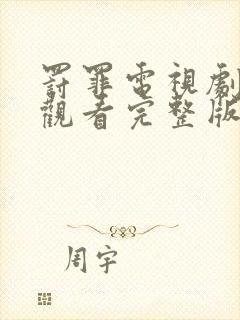 罰罪電視劇
觀看完整版
周宇